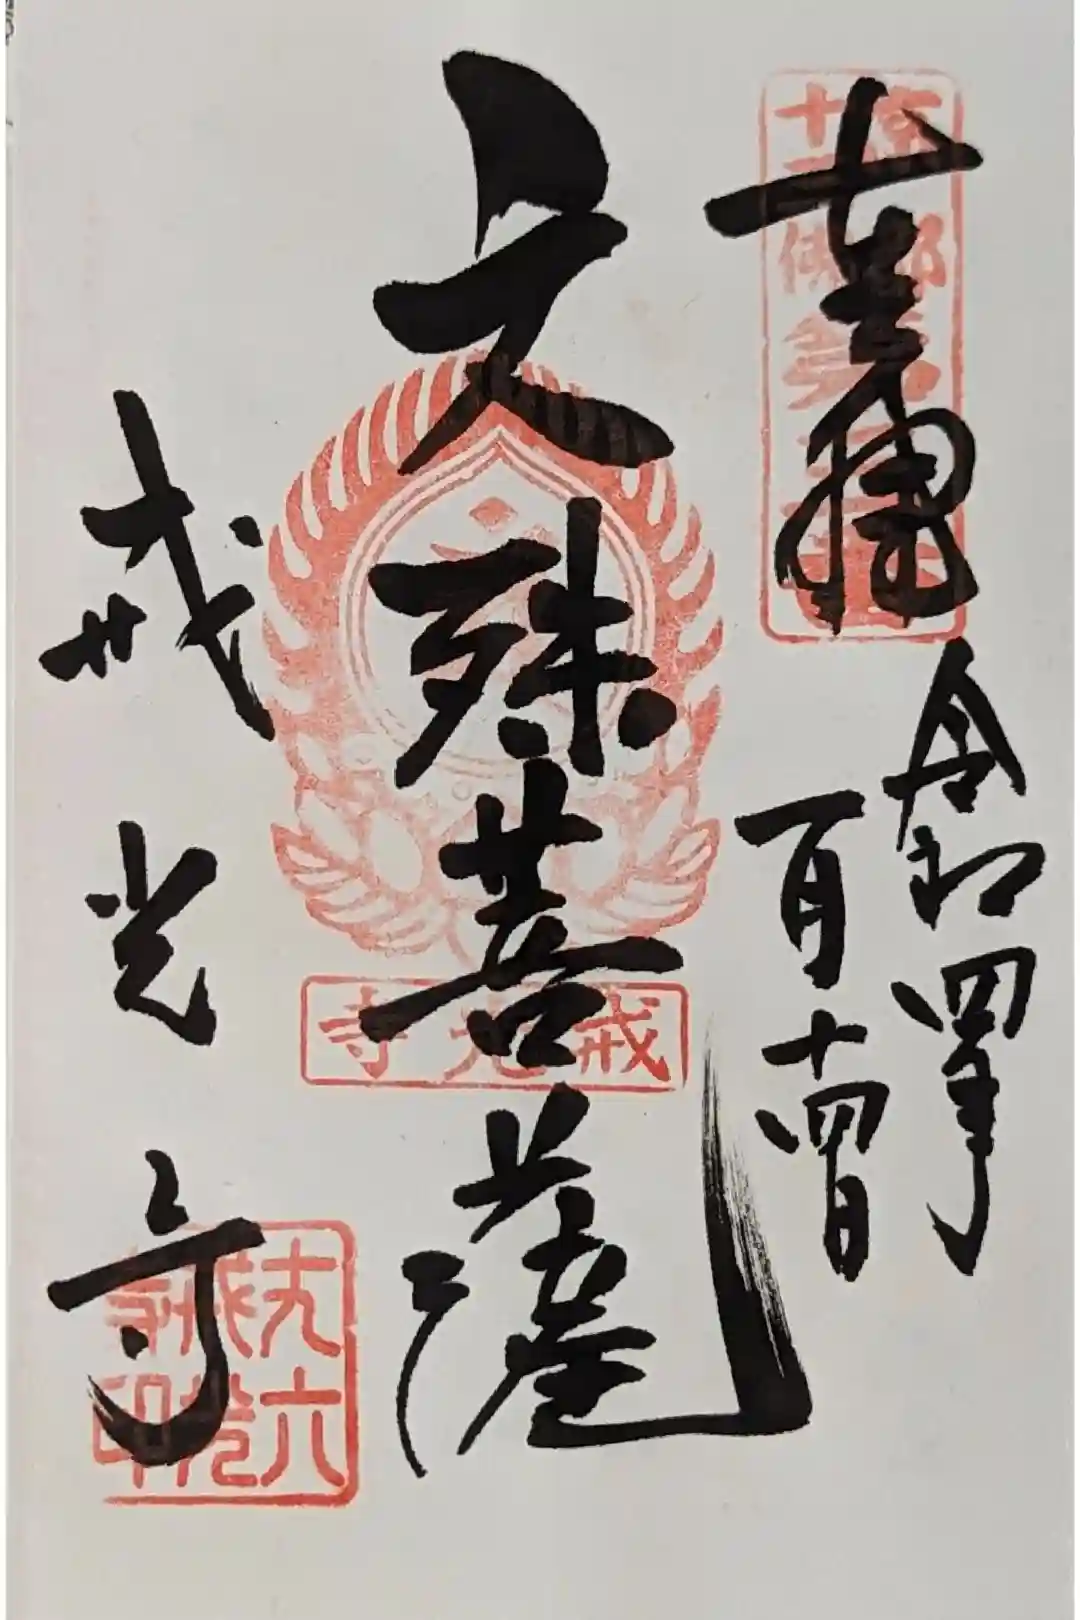 奉拝
京都十三佛第三番
令和四年
一月十四日
文殊菩薩
戒光寺
戒光寺
丈六戒光寺印